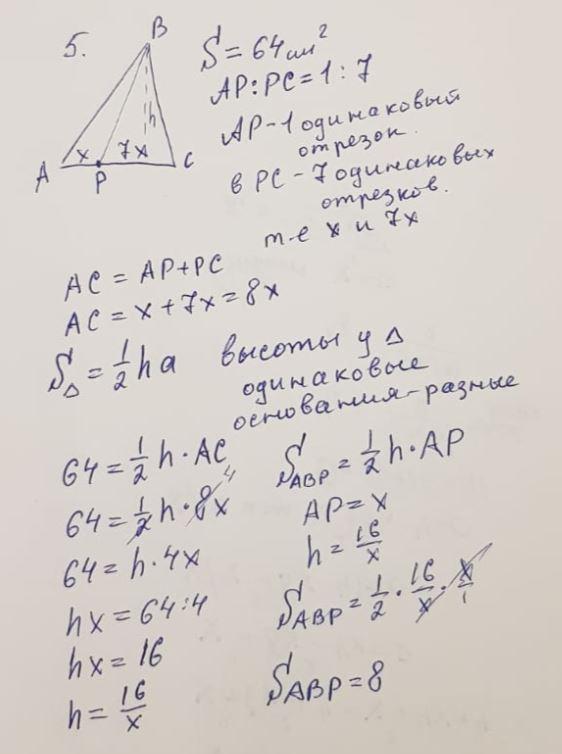 5.
B
h
A x P 7x C
S = 64 см²
AP:PC = 1:7
AP - 1 одинаковый
отрезок.
в PC - 7 одинаковых
отрезков.
т-е x и 7x
AC = AP+PC
AC = x + 7x = 8x
S△ = 1/2 ha
высоты у △
одинаковые
основания-разные
64 = 1/2 h · AC
64 = 1/2 h · 8x 4
64 = h · 4x
hx = 64:4
hx = 16
h = 16/x
S ABP = 1/2 h · AP
AP = x
h = 16/x
S ABP = 1/2 · 16/x · x/1
S ABP = 8